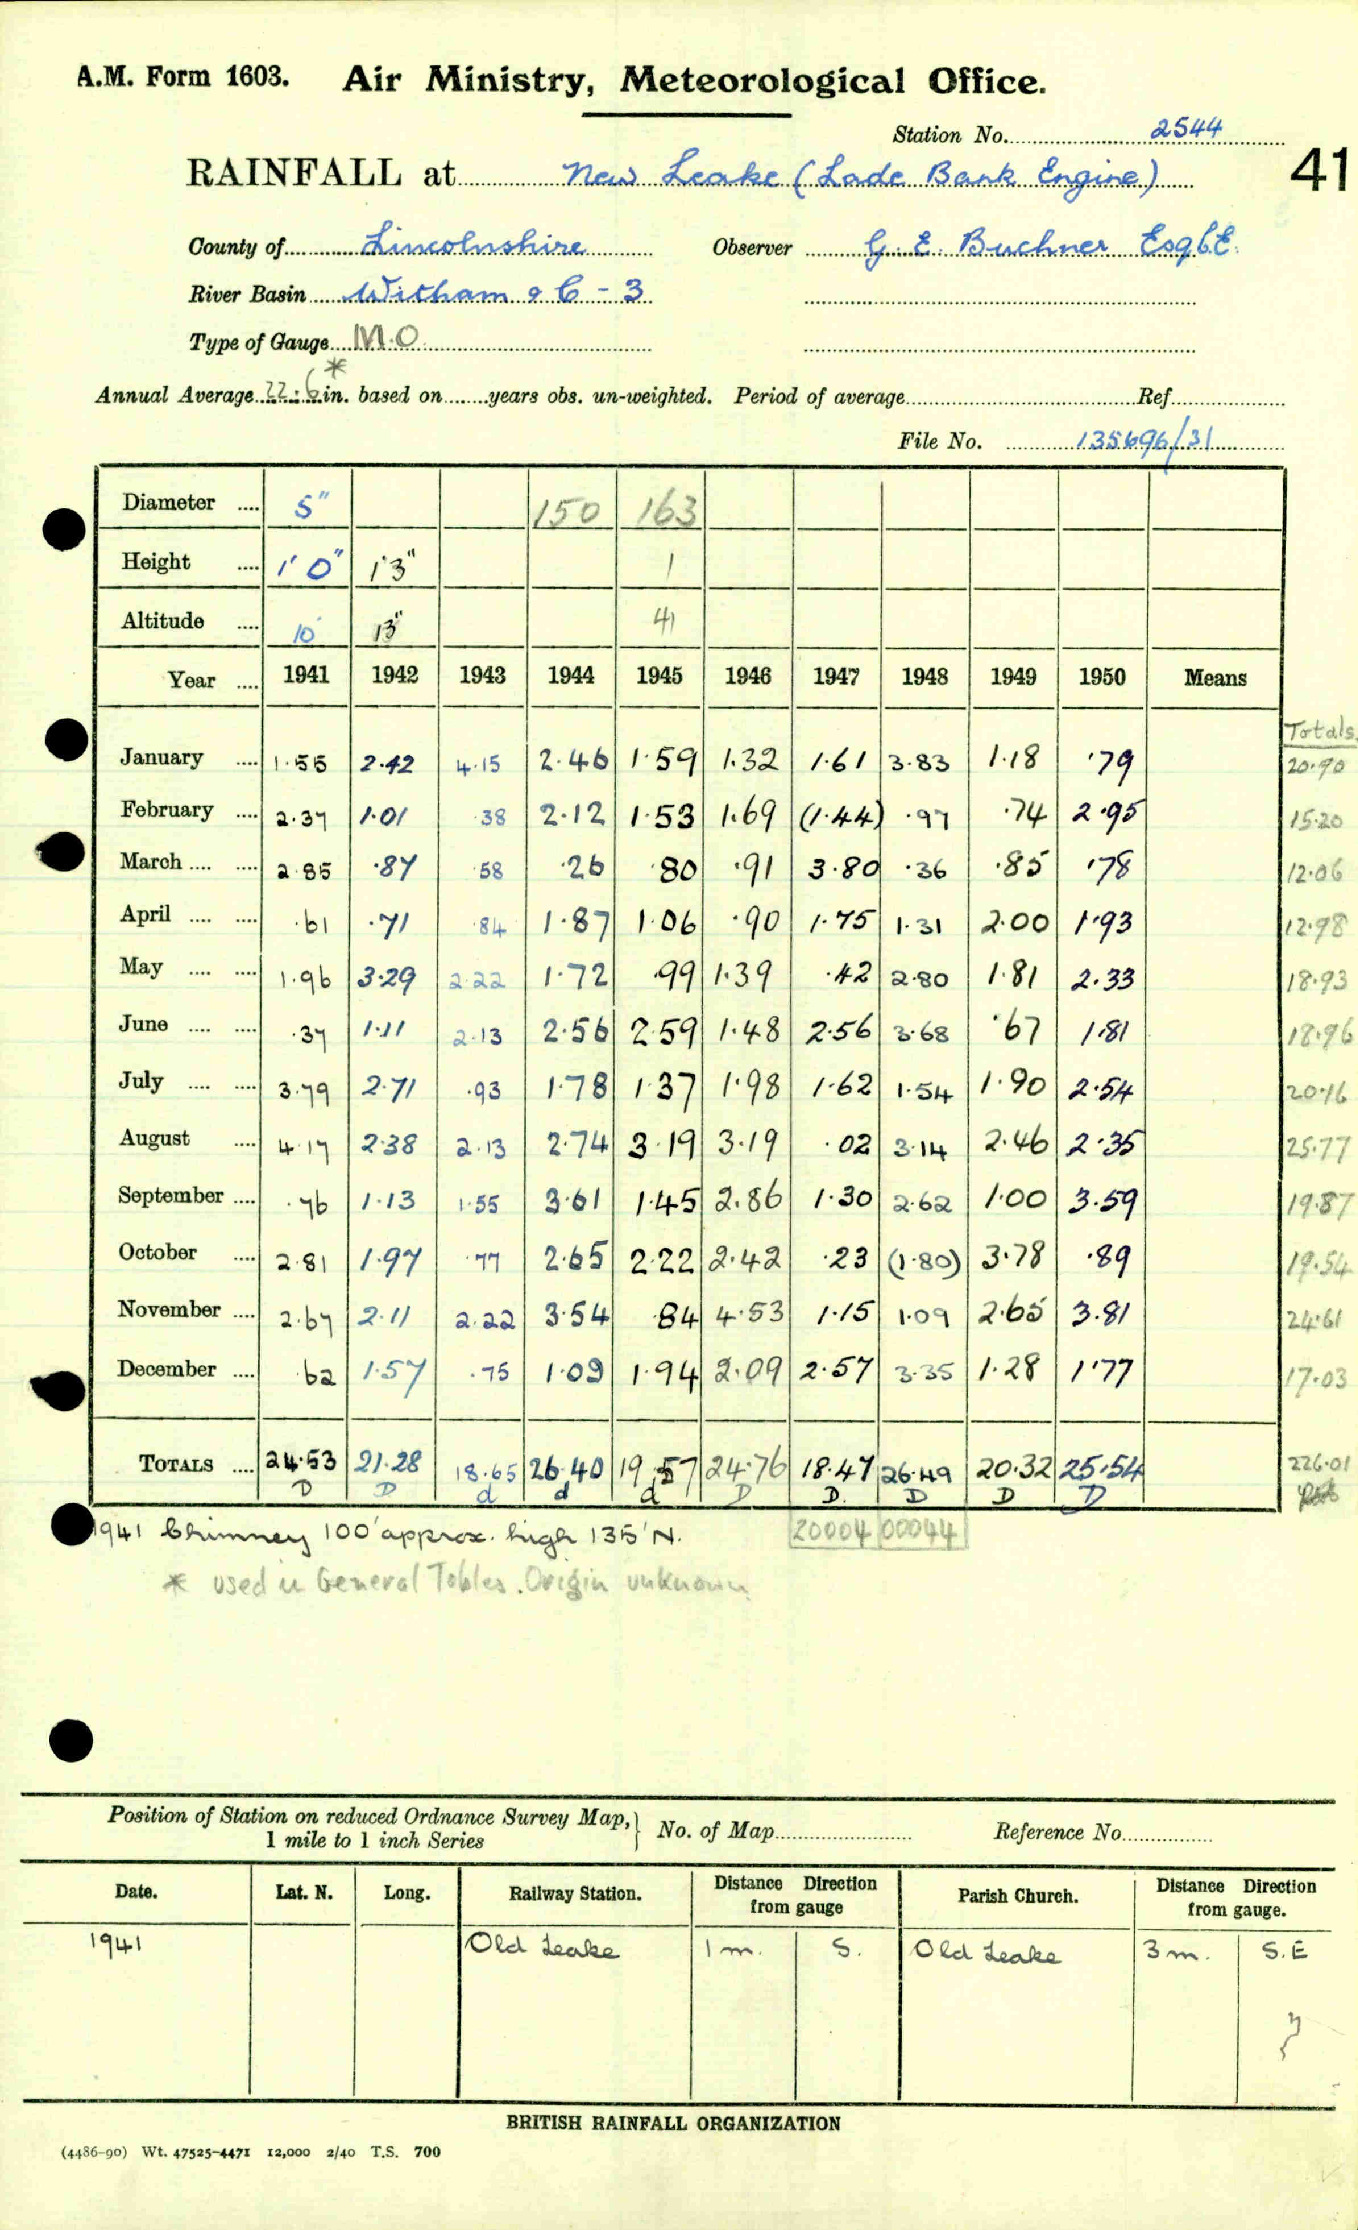 A.M. Form 1603. Air Ministry, Meteorological Office.
Station No. 2544
41
RAINFALL at New Leake (Lade Bank Engine)
County of Lincolnshire Observer G. E. Buchner Esq C.E.
River Basin Witham & C - 3
Type of Gauge M.O
Annual Average 22.6 * in. based on years obs. un-weighted. Period of average Ref.
File No. 135696/31
Diameter .... 5" 150 163
Height .... 1' 0" 1'3" 1
Altitude .... 10' 13" 41
Year .... 1941 1942 1943 1944 1945 1946 1947 1948 1949 1950 Means
Totals.
January .... 1.55 2.42 4.15 2.46 1.59 1.32 1.61 3.83 1.18 .79 20.90
February .... 2.37 1.01 .38 2.12 1.53 1.69 (1.44) .97 .74 2.95 15.20
March .... .... 2.85 .87 .58 .26 .80 .91 3.80 .36 .85 .78 12.06
April .... .... .61 .71 .84 1.87 1.06 .90 1.75 1.31 2.00 1.93 12.98
May .... .... 1.96 3.29 2.22 1.72 .99 1.39 .42 2.80 1.81 2.33 18.93
June .... .... .37 1.11 2.13 2.56 2.59 1.48 2.56 3.68 .67 1.81 18.96
July .... .... 3.79 2.71 .93 1.78 1.37 1.98 1.62 1.54 1.90 2.54 20.16
August .... 4.17 2.38 2.13 2.74 3.19 3.19 .02 3.14 2.46 2.35 25.77
September .... .76 1.13 1.55 3.61 1.45 2.86 1.30 2.62 1.00 3.59 19.87
October .... 2.81 1.97 .77 2.65 2.22 2.42 .23 (1.80) 3.78 .89 19.54
November .... 2.67 2.11 2.22 3.54 .84 4.53 1.15 1.09 2.65 3.81 24.61
December .... .62 1.57 .75 1.09 1.94 2.09 2.57 3.35 1.28 1.77 17.03
TOTALS .... 24.53 21.28 18.65 26.40 19.57 24.76 18.47 26.49 20.32 25.54 226.01
D D d d d D D. D D D
1941 Chimney 100' approx. high 135' N. 20004 00044
* used in General Tables. Origin unknown
Position of Station on reduced Ordnance Survey Map, 1 mile to 1 inch Series } No. of Map Reference No.
Date. Lat. N. Long. Railway Station. Distance Direction from gauge Parish Church. Distance Direction from gauge.
1941 Old Leake 1 m. S. Old Leake 3 m. S.E
BRITISH RAINFALL ORGANIZATION
(4486-90) Wt. 47525-4471 12,000 2/40 T.S. 700